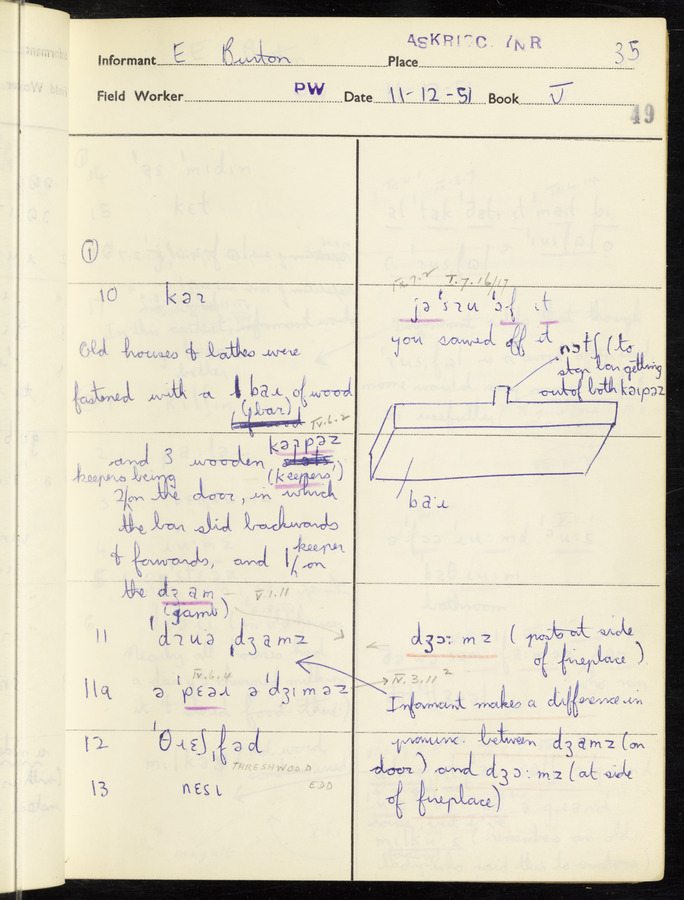 Informant E Burton Place ASKRIGG. /NR 35
Field Worker PW Date 11-12-51 Book V
49
①
10 kəɪ
Old houses & lathes were
fastened with a baːɹ of wood
(bar) IV.6.2
and 3 wooden kəɪpəz
(keepers')
keepers being
2 on the door, in which
the bar slid backwards
& forwards, and 1 keeper on
the dʒam V.1.11
(jamb)
11 ˈdɪuəˌdʒamz
IV.6.4
11a ə ˈpɛəɹ ə ˈdʒɪməz IV.3.11 2
12 ˈθɹɛʃˌfəd
THRESHWOOD
13 nɛsɪ EDD
V.7.16/17
jəˈsɪu ˈɔf ɪt
you sawed off it
notʃ (to
stop bar getting
out of both kəɪpəz
baːɹ
dʒɔːmz (posts at side
of fireplace)
Informant makes a difference in
pronunc. between dʒamz (on
door) and dʒɔːmz (at side
of fireplace)